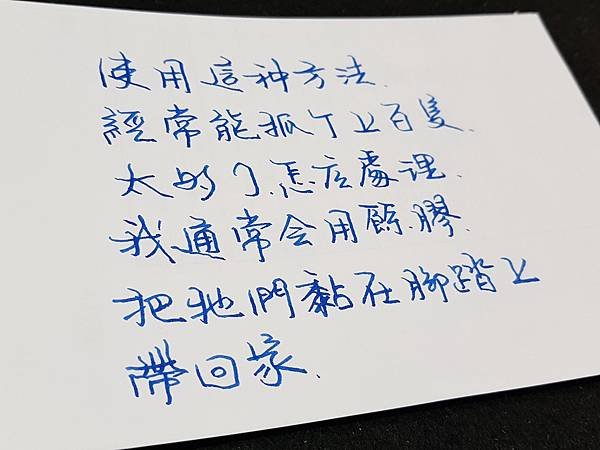 使用這种方法.
經常能抓个上百隻.
太多了.怎么處理.
我通常会用膠.
把牠們黏在腳踏上
帶回家.